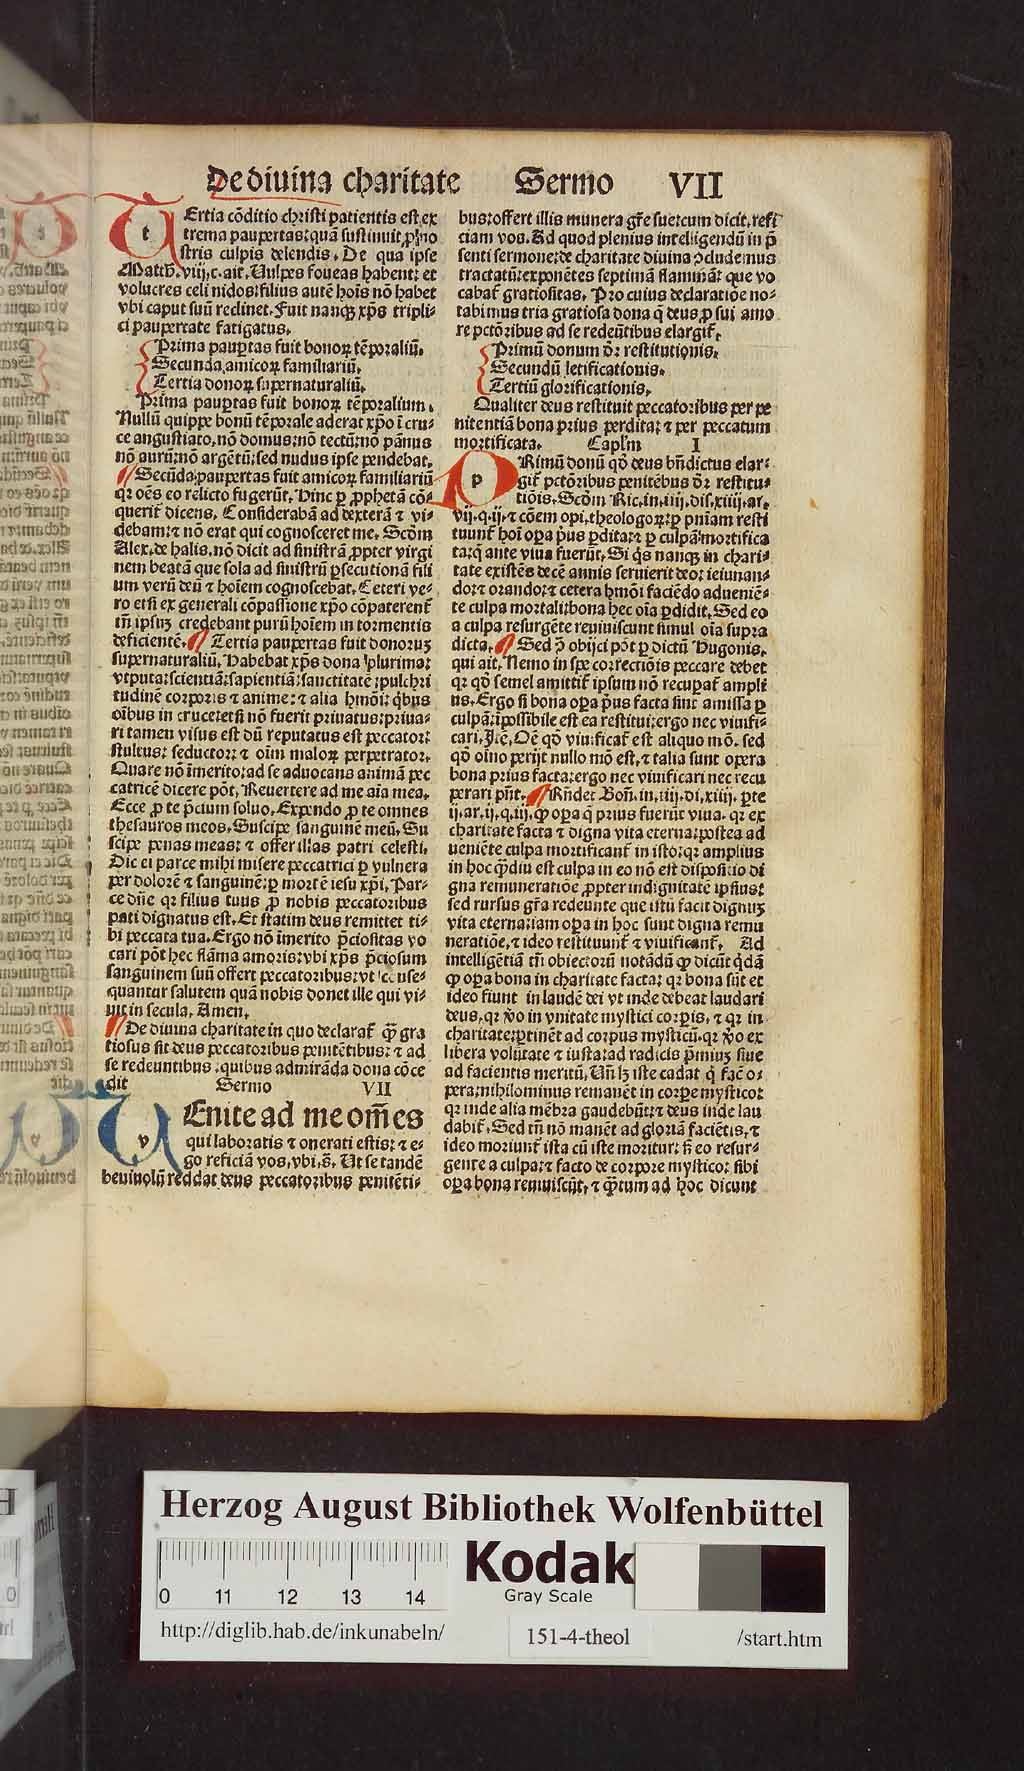 De diuina charitate Sermo VII
tErtia cōditio christi patientis est ex
trema paupertas: quā sustinuit ꝓ no
stris culpis delendis. De qua ipse
Matth. viij. c. ait. Vulpes foueas habent: et
volucres celi nidos: filius autē hoīs nō habet
vbi caput suū reclinet. Fuit nanqꝫ xp̄s tripli-
ci paupertate fatigatus.
Prima paup̄tas fuit bonoꝝ tēporaliū.
Secunda amicoꝝ familiariū.
Tertia donoꝝ supernaturaliū.
Prima paup̄tas fuit bonoꝝ tēporalium.
Nullū quippe bonū tēporale aderat xp̄o ī cru-
ce angustiato, nō domus: nō tectū: nō pānus
nō aurū: nō argētū: sed nudus ipse pendebat.
Secūda: paupertas fuit amicoꝝ familiariū
qꝛ oēs eo relicto fugerūt. Hinc ꝑ ꝓphetā cō-
querit᷑ dicens. Considerabā ad dexterā ⁊ vi-
debam: ⁊ nō erat qui cognosceret me. Scdm̄
Alex. de halis. nō dicit ad sinistrā ꝓpter virgi
nem beatā que sola ad sinistrū ꝑsecutionā fili
um verū deū ⁊ hoīem cognoscebat. Ceteri ve-
ro etsi ex generali cōpassione xp̄o cōpaterent᷑
tn̄ ipsuꝫ credebant purū hoīem in tormentis
deficientē. Tertia paupertas fuit donoruꝫ
supernaturaliū. Habebat xp̄s dona plurima:
vtputa: scientiā: sapientiā: sanctitatē: pulchri
tudinē corporis ⁊ anime: ⁊ alia hmōi: q̇bus
oībus in cruce: etsi nō fuerit priuatus: priua-
ri tamen visus est dū reputatus est peccator:
stultus: seductor: ⁊ oīm maloꝝ perpetrator.
Quare nō īmerito: ad se aduocans animā pec
catricē dicere pōt. Reuertere ad me aīa mea.
Ecce ꝓ te p̄cium soluo. Expendo ꝓ te omnes
thesauros meos. Suscipe sanguinē meū. Su
scipe penas meas: ⁊ offer illas patri celesti.
Dic ei parce mihi misere peccatrici ꝑ vulnera
per dolorē ⁊ sanguinē: ꝑ mortē iesu xp̄i. Par-
ce dn̄e qꝛ filius tuus ꝓ nobis peccatoribus
pati dignatus est. Et statim deus remittet ti-
bi peccata tua. Ergo nō īmerito p̄ciositas vo
cari pōt hec flāma amoris: vbi xp̄s p̄ciosum
sanguinem suū offert peccatoribus: vt cōse-
quantur salutem quā nobis donet ille qui vi-
uit in secula. Amen.
De diuina charitate in quo declarat᷑ ꝙ̄ gra
tiosus sit deus peccatoribus penitētibus: ⁊ ad
se redeuntibus: quibus admirāda dona cōce
dit Sermo VII
vEnite ad me om̄es
qui laboratis ⁊ onerati estis: ⁊ e-
go reficiā vos, vbi. s̄. Ut se tandē
beniuolū reddat deus peccatoribus penitēti-
bus: offert illis munera gr̄e sue: cum dicit. refi
ciam vos. Ad quod plenius intelligendū in p̄
senti sermone: de charitate diuina ↄcludemus
tractatū: exponētes septimā flammā: que vo
cabat᷑ gratiositas. Pro cuius declaratiōe no-
tabimus tria gratiosa dona q̄ deus ꝓ sui amo
re pctōribus ad se redeūtibus elargit᷑.
Primū donum dr̄ restitutionis.
Secundū letificationis.
Tertiū glorificationis.
Qualiter deus restituit peccatoribus per pe
nitentiā bona prius perdita: ⁊ per peccatum
mortificata. Caplm̄ I
pRimū donū qd̄ deus bn̄dictus elar-
git᷑ pctōribus penitētibus dr̄ restitu-
tiōis. Scdm̄ Ric. in. iiij. dis. xiiij. ar.
vij. q. ij. ⁊ cōem opi. theologoꝝ: ꝑ pniam resti
tuunt᷑ hoī oꝑa p̄us ꝑdita: ⁊ ꝑ culpā mortifica
ta: q̄ ante viua fuerūt. Si q̇s nanqꝫ in chari-
tate existēs decē annis seruierit deo: ieiunan-
do: ⁊ orando: ⁊ cetera hmōi faciēdo aduenīe-
te culpa mortali: bona hec oīa ꝑdidit. Sed eo
a culpa resurgēte reuiuiscunt simul oīa supra
dicta. Sed ↄ̄ obijci pōt ꝑ dictū Hugonis.
qui ait. Nemo in spe correctiōis peccare debet
qꝛ qd̄ semel amittit᷑ ipsum nō recuꝑat᷑ ampli
us. Ergo si bona oꝑa p̄us facta sint amissa ꝑ
culpā: īpossibile est ea restitui: ergo nec viuifi-
cari. Itē. Oē qd̄ viuificat᷑ est aliquo mō. sed
qd̄ oīno perijt nullo mō est, ⁊ talia sunt opera
bona prius facta: ergo nec viuificari nec recu
perari pn̄t. Rn̄det Bon̄. in. iiij. di. xiiij. ꝑte
ij. ar. ij. q. iij. ꝙ oꝑa q̄ prius fuerūt viua. qꝛ ex
charitate facta ⁊ digna vita eterna: postea ad
ueniēte culpa mortificant᷑ in isto: qꝛ amplius
in hoc qͣ̄diu est culpa in eo nō est dispositio di
gna remuneratiōe ꝓpter indignitatē ipsius:
sed rursus gr̄a redeunte que istū facit dignuꝫ
vita eterna: iam oꝑa in hoc sunt digna remu
neratiōe, ⁊ ideo restituunt᷑ ⁊ viuificant᷑. Ad
intelligētiā tn̄ obiectorū notādū ꝙ dicūt q̇dā
ꝙ oꝑa bona in charitate facta: qꝛ bona sūt et
ideo fiunt in laudē dei vt inde debeat laudari
deus, qꝛ v̄o in vnitate mystici corꝑis, ⁊ qꝛ in
charitate: ꝑtinēt ad corpus mysticū. qꝛ v̄o ex
libera volūtate ⁊ iusta: ad radicis p̄miuꝫ siue
ad facientis meritū. Vn̄ lꝫ iste cadat q̇ fac̄ o-
pera: nihilominus remanēt in corꝑe mystico:
qꝛ inde alia mēbra gaudebūt: ⁊ deus inde lau
dabit᷑. Sed tn̄ nō manēt ad gloriā faciētis, ⁊
ideo moriunt᷑ ista cū iste moritur: s̄ eo resur-
gente a culpa: ⁊ facto de corpore mystico: sibi
oꝑa bona reuiuiscūt, ⁊ qͣ̄tum ad hoc dicunt
Herzog August Bibliothek Wolfenbüttel
0 11 12 13 14
Kodak
Gray Scale
http://diglib.hab.de/inkunabeln/ 151-4-theol /start.htm